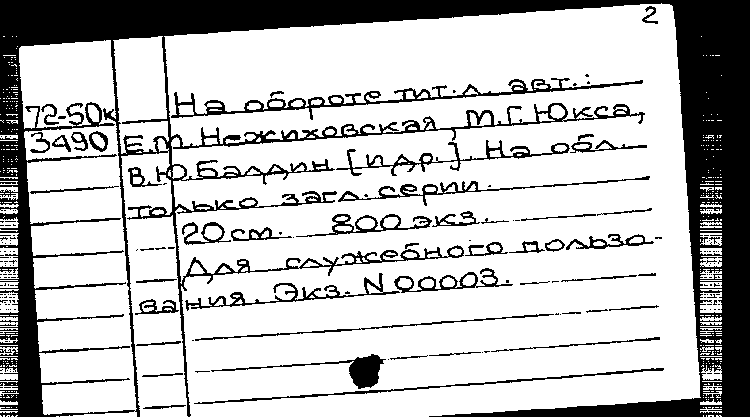 2
72-50к На обороте тит.л. авт.:
3490 Е.М.Нежиховская, М.Г.Юкса,
В.Ю.Балдин [и др.]. На обл.
только загл. серии.
20 см. 800 экз.
Для служебного пользо-
вания. Экз. N 00003.